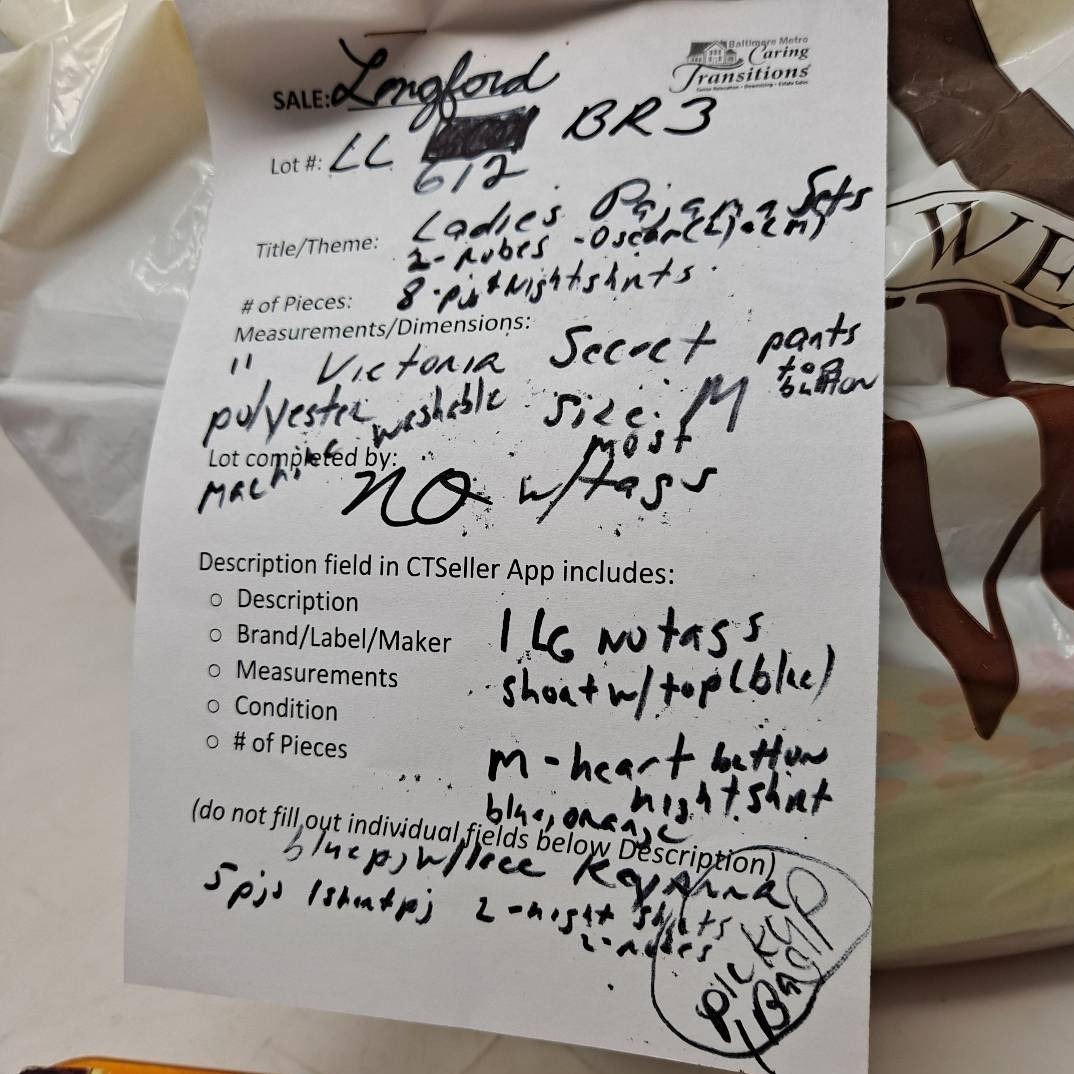 SALE: Longford
Baltimore Metro
Caring
Transitions
Lot #: LL BR3
612
Title/Theme: Ladies Pajama Sets
2-robes -Oscar(L)+(M)
# of Pieces: 8-pjs+Nightshirts
Measurements/Dimensions:
" Victoria Secret pants
top
button
polyester size: M
machine washable most
Lot completed by: no w/tags
Description field in CTSeller App includes:
○ Description
○ Brand/Label/Maker
○ Measurements
○ Condition
○ # of Pieces
1 LG NO tags
short w/top (blue)
M-heart button
nightshirt
blue, orange
(do not fill out individual fields below Description)
blue pj w/lace
5 pjs 1 short pj 2-night shirts
2-robes
Pick up
1 Bag
WE